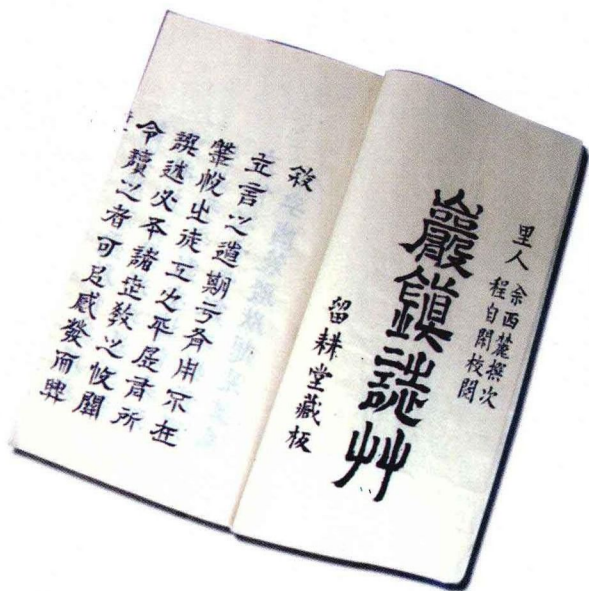 里人
佘西麓撰次
程自閑校閱
巖鎮誌艸
留耕堂藏板
敘
立言之道期于有用不在
鞶帨之徒工也平居有所
譔述必本諸世教之攸關
令讀之者可㠯感發而興